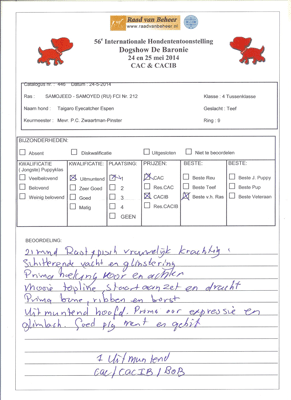 Raad van Beheer
www.raadvanbeheer.nl
56e Internationale Hondententoonstelling
Dogshow De Baronie
24 en 25 mei 2014
CAC & CACIB
Catalogus nr. : 446 Datum : 24-5-2014
Ras : SAMOJEED - SAMOYED (RU) FCI Nr. 212 Klasse : 4 Tussenklasse
Naam hond : Taigaro Eyecatcher Espen Geslacht : Teef
Keurmeester : Mevr. P.C. Zwaartman-Pinster Ring : 9
BIJZONDERHEDEN:
Absent Diskwalificatie Uitgesloten Niet te beoordelen
KWALIFICATIE KWALIFICATIE: PLAATSING: PRIJZEN: BESTE: BESTE:
( Jongste) Puppyklas
Veelbelovend Uitmuntend 1 CAC Beste Reu Beste J. Puppy
Belovend Zeer Goed 2 Res.CAC Beste Teef Beste Pup
Wenig belovend Goed 3 CACIB Beste v.h. Ras Beste Veteraan
Matig 4 Res.CACIB
GEEN
BEOORDELING:
21 mnd Rastypisch vrouwelijk krachtig
Schitterende vacht en glinstering
Prima hoeking voor en achter
Mooie topline, staartaanzet en dracht
Prima bone, ribben en borst
Uitmuntend hoofd. Prima oor expressie en
glimlach. Goed pig ment en gebit
1 Uitmuntend
CAC/CACIB/BOB